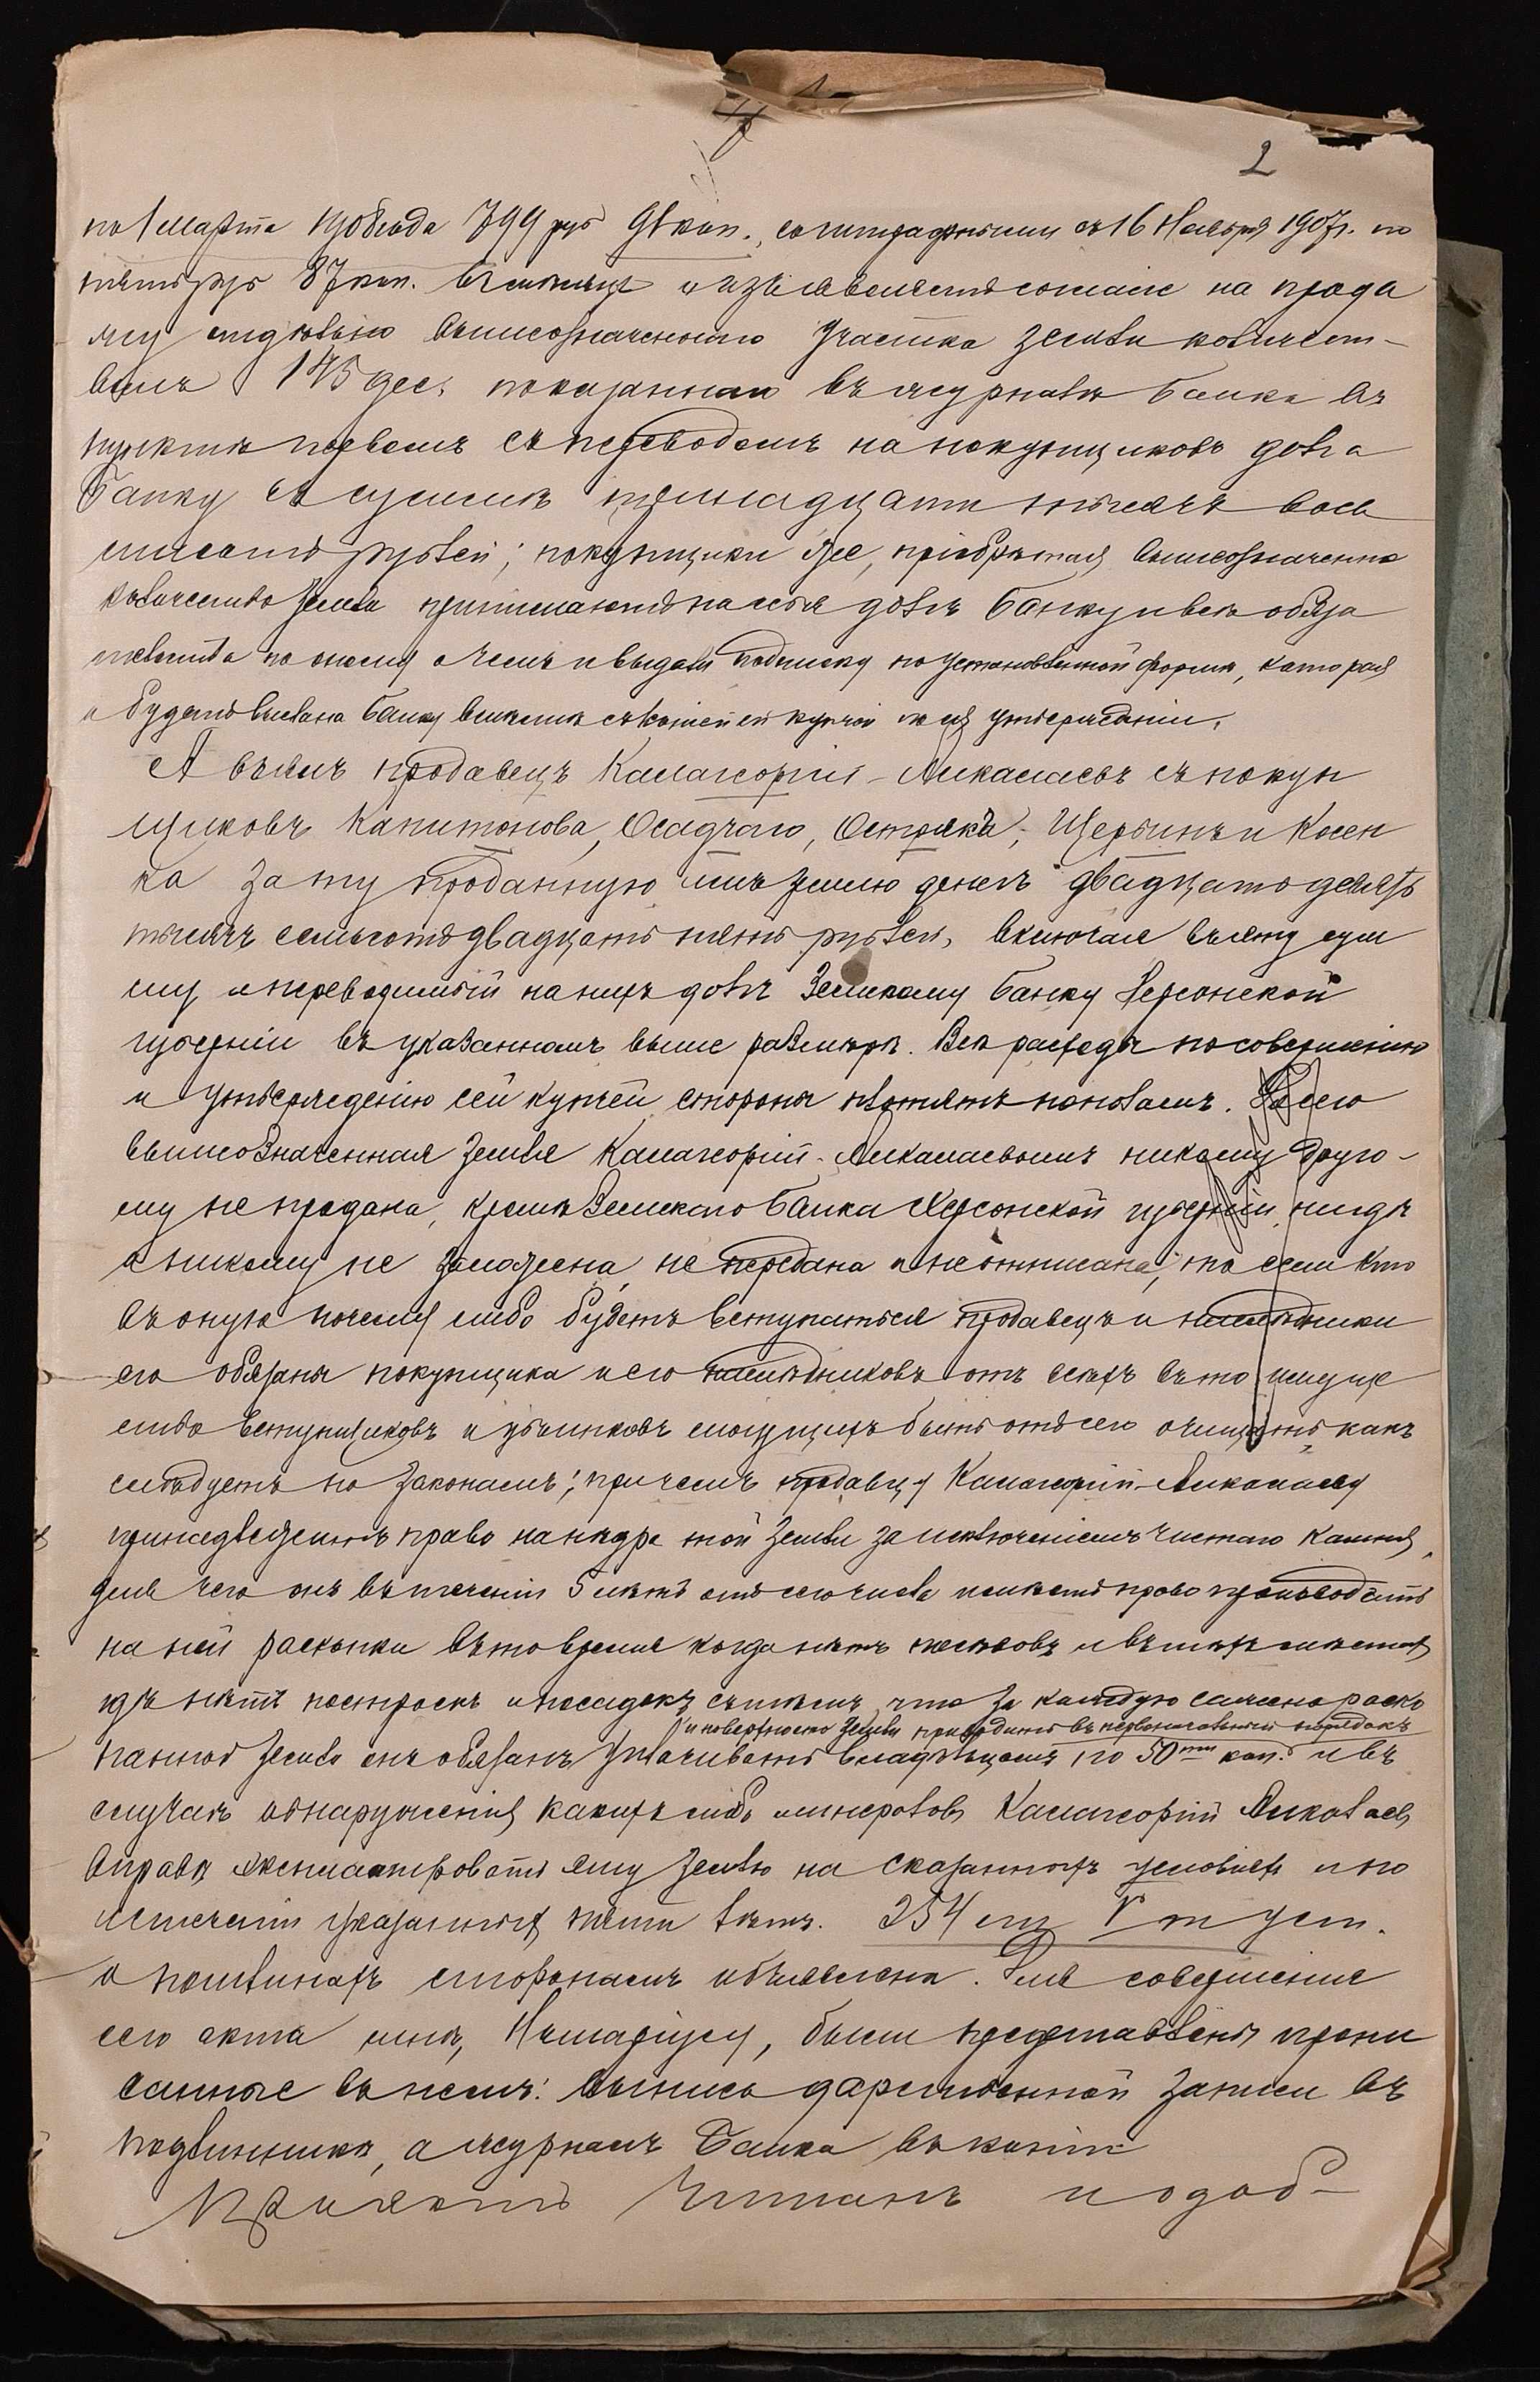 2
по 1 марта 1908 года 799 руб 91 коп., со штрафными съ 16 Ноября 1907 г. по
пяти руб 87 коп. въ мѣсяцъ и изъявляетъ согласіе на прода
жу отдѣльно вышеозначеннаго участка земли количест-
вомъ 145 дес. показанная въ журналѣ банка въ
пунктѣ первомъ съ переводомъ на покупщиковъ долга
банку въ суммѣ тысячъ вось
мисотъ рублей; покупщики же, пріобрѣтая вышеозначенное
количество земли принимаютъ на себя долгъ банку и всѣ обяза
тельства по оному о чемъ и выдали подписку по установленной формѣ, которая
и будетъ выслана банку вмѣстѣ съ копіей сей купчей по ея утвержденіи.
А взялъ продавецъ Каллагеоргій-Аликалаевъ съ покуп
щиковъ Капитонова, Осадчаго, Остряка, Щербинъ и Косен
ка за ту проданную имъ землю денегъ двадцать девять
тысячъ семьсотъ двадцать пять рублей, включая въ эту сум
му и переводимый на нихъ долгъ Земскому банку Херсонской
губерніи въ указанномъ выше размѣрѣ. Всѣ расходы по совершенію
и утвержденію сей купчей стороны платятъ пополамъ. До сего
вышеозначенная земля Каллагеоргій-Аликалаевымъ никому друго-
му не продана, кромѣ Земскаго банка Херсонской губерніи, нигдѣ
и никому не заложена, не передана и не отписана, то если кто
въ оную почему либо будетъ вступаться продавецъ и наслѣдники
его обязаны покупщика и его наслѣдниковъ отъ всѣхъ въ то имуще
либо вступщиковъ и убытковъ могущихъ быть отъ сего очищать какъ
слѣдуетъ по законамъ; причемъ продавцу Каллагеоргій-Аликалаеву
право на нѣдра той земли за исключеніемъ чистаго камня,
для чего онъ въ теченіи 5 лѣтъ отъ сего числа имѣетъ право производить
на ней раскопки въ то время когда нѣтъ посѣвовъ и въ тѣхъ мѣстахъ
гдѣ нѣтъ построекъ и посадокъ съ тѣмъ, что за каждую сажень раско
и поверхность земли приводить въ первоначальный порядокъ
панной земли онъ обязанъ уплачивать владѣльцамъ по 50ти коп. и въ
случаѣ обнаруженія какихъ либо минераловъ Каллагеоргій Аликалаевъ
вправѣ эксплоатировать эту землю на сказанныхъ условіяхъ и по
истеченіи указанныхъ пяти лѣтъ. 254 ст V т уст.
о пошлинахъ сторонамъ объявлена. Для совершенія
сего акта мнѣ, Нотаріусу, были представлены пропи
санные въ немъ: выпись дарственной записи въ
подлинникѣ, а журналъ Банка въ копіи
Проектъ читанъ и одоб-